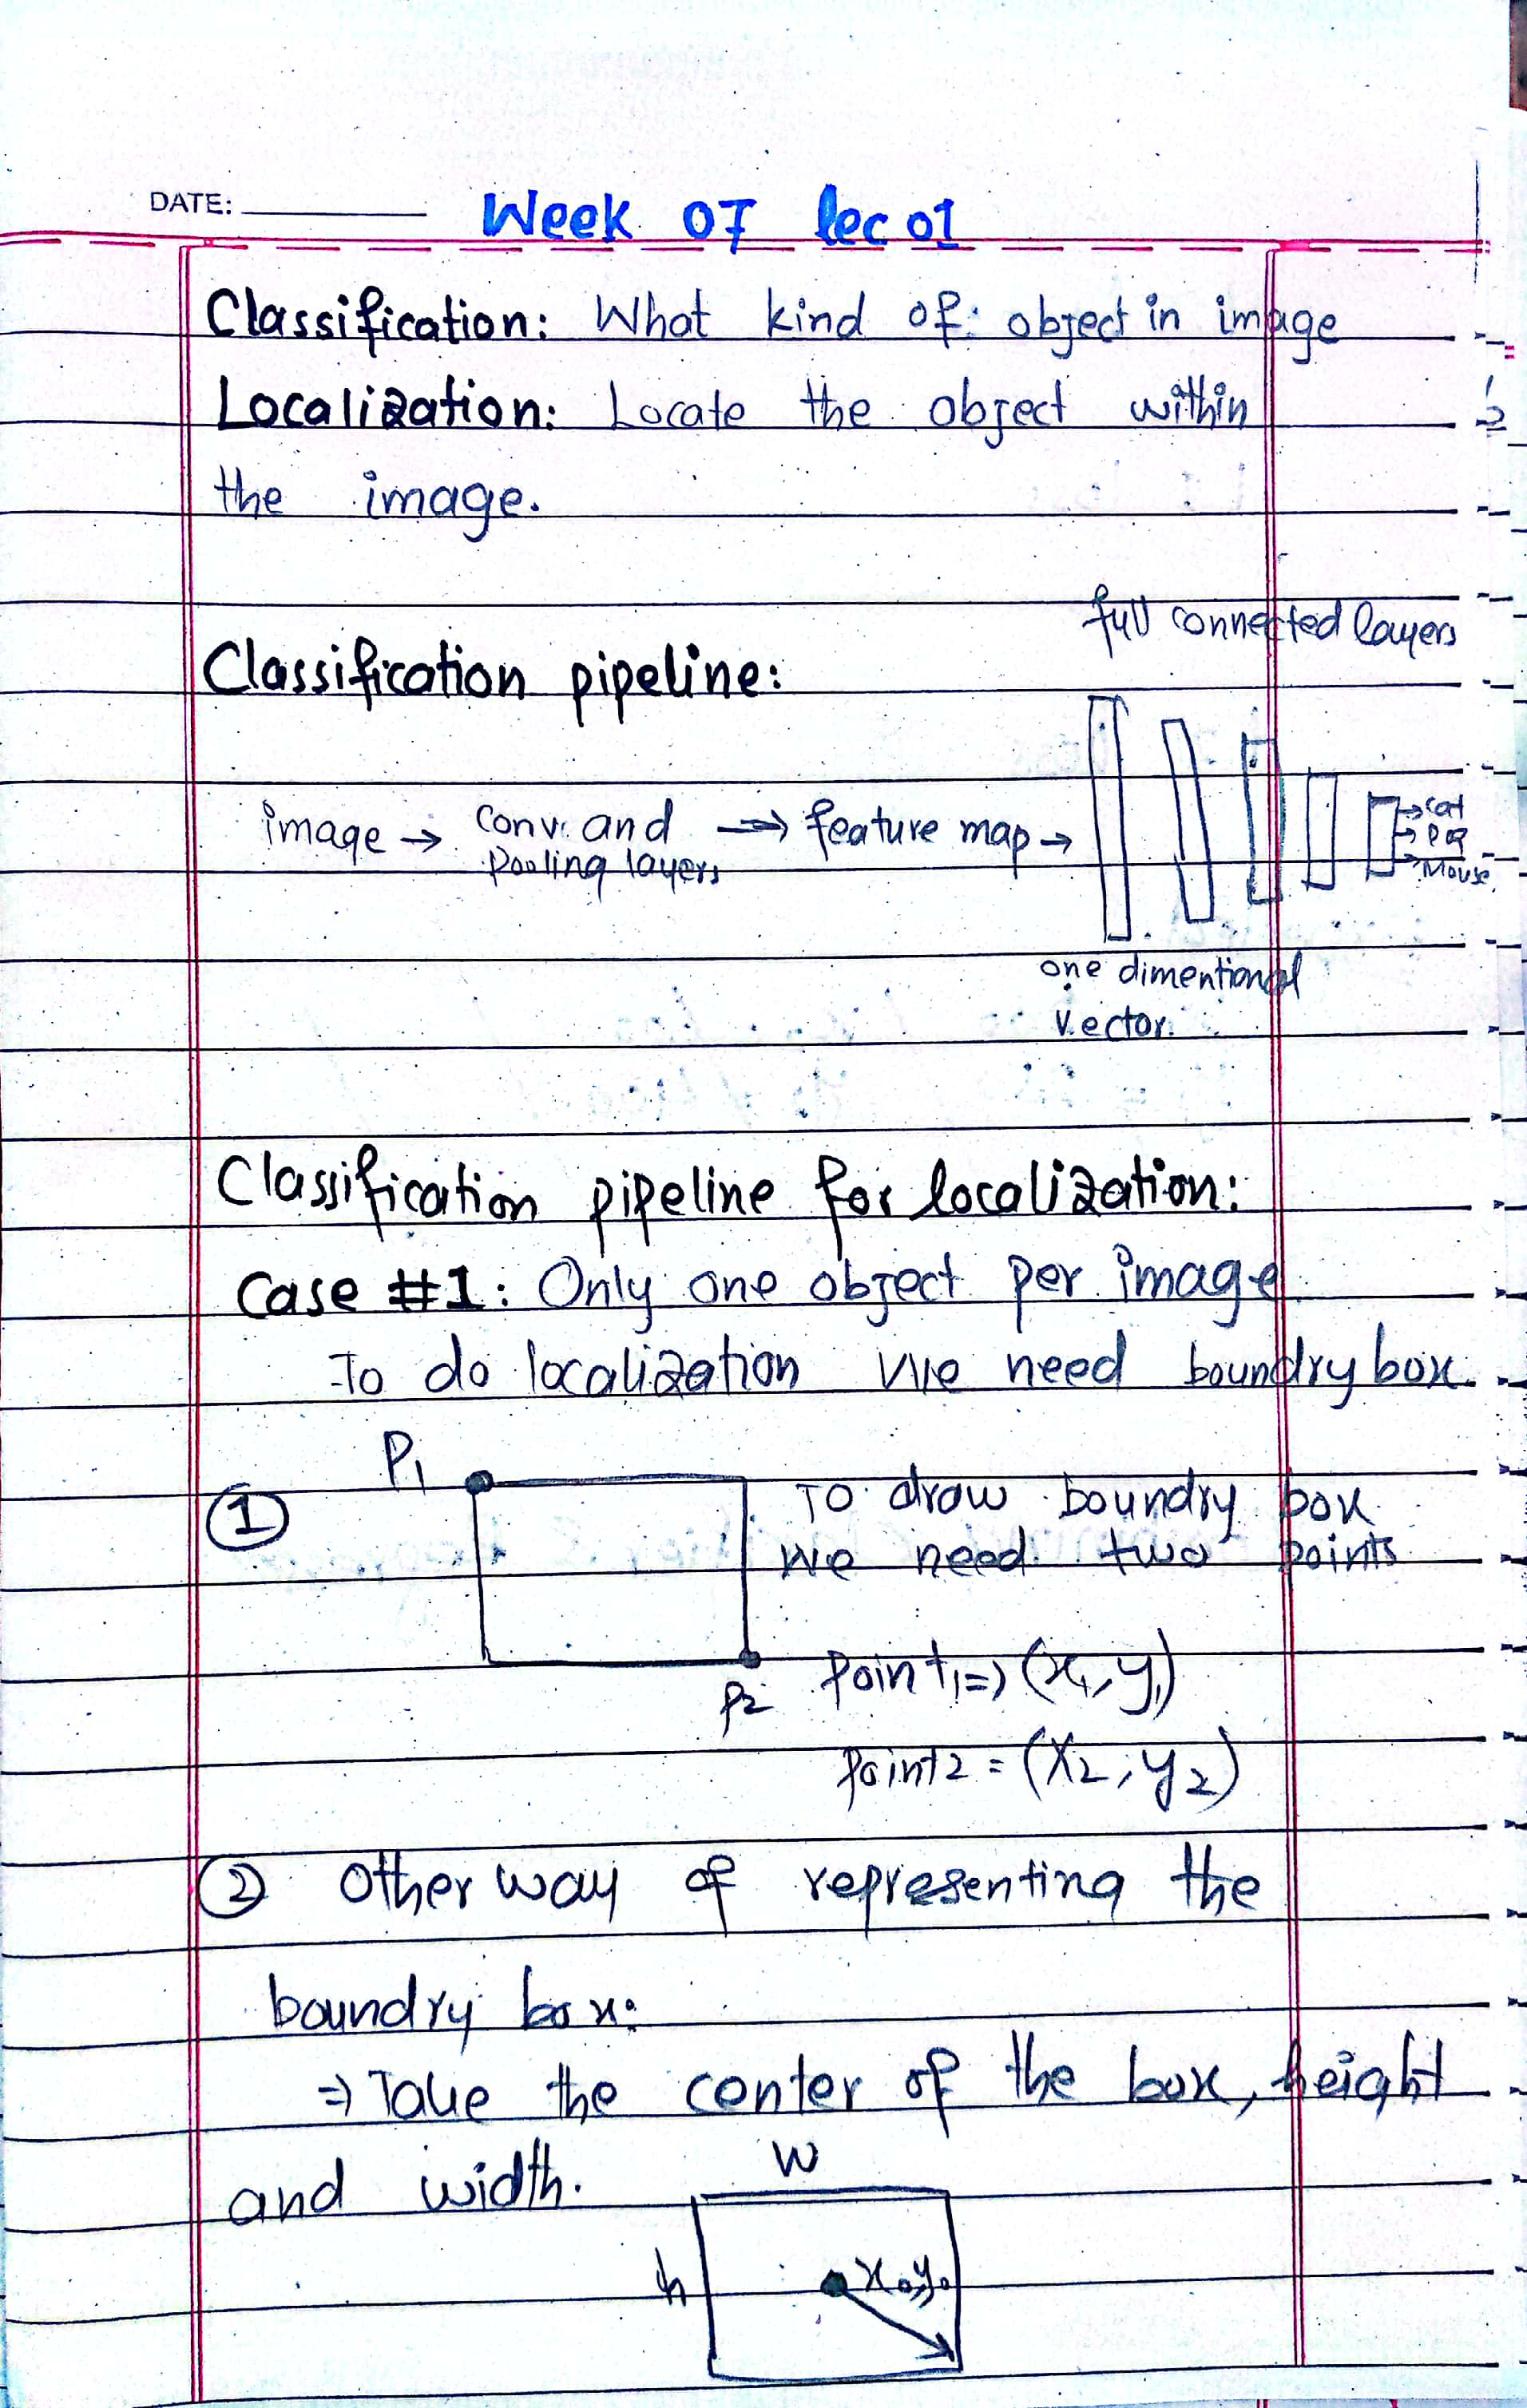 DATE:
Week 07 lec 01
Classification: What kind of object in image
Localization: Locate the object within
the image.
full connected layers
Classification pipeline:
image → conv. and ⇒ feature map →
Pooling layers
→ cat
→ Dog
→ Mouse
one dimentional
vector.
Classification pipeline for localization:
Case #1: Only one object per image
To do localization we need boundry box.
P1
① To draw boundry box
we need two points
P2 Point1 => (x1, y1)
Point2 = (x2, y2)
② Other way of representing the
boundry box:
⇒ Take the center of the box, height
and width.
W
h x0, y0